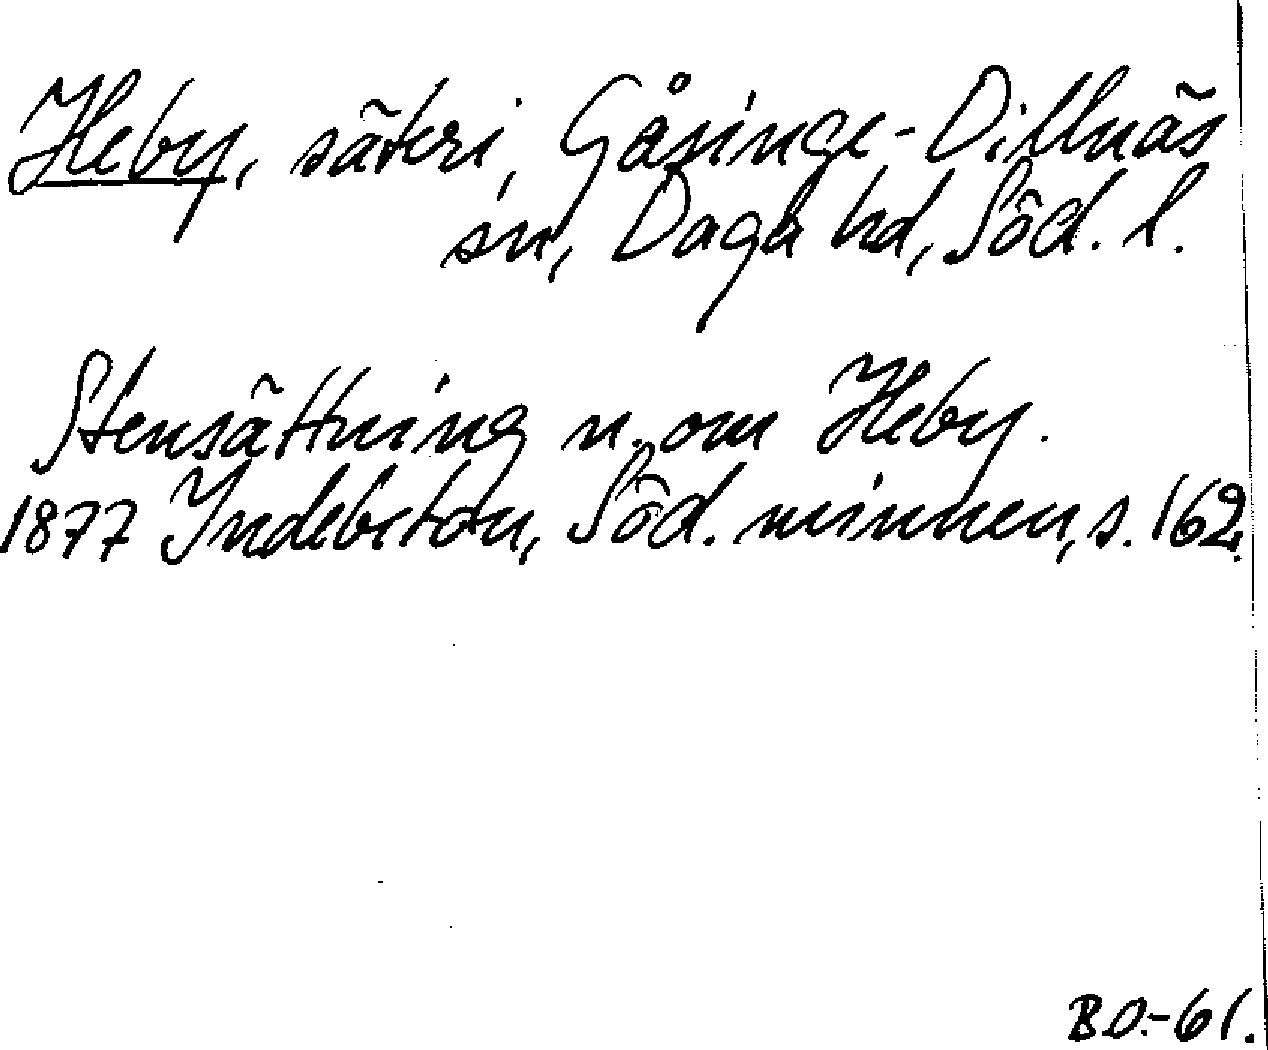 Heby, säteri, Gåsinge-Dillnäs
sn, Daga hd, Söd. l.
Stensättning n. om Heby.
1877 Indebetou, Söd. minnen, s. 162.
B.O.-61.